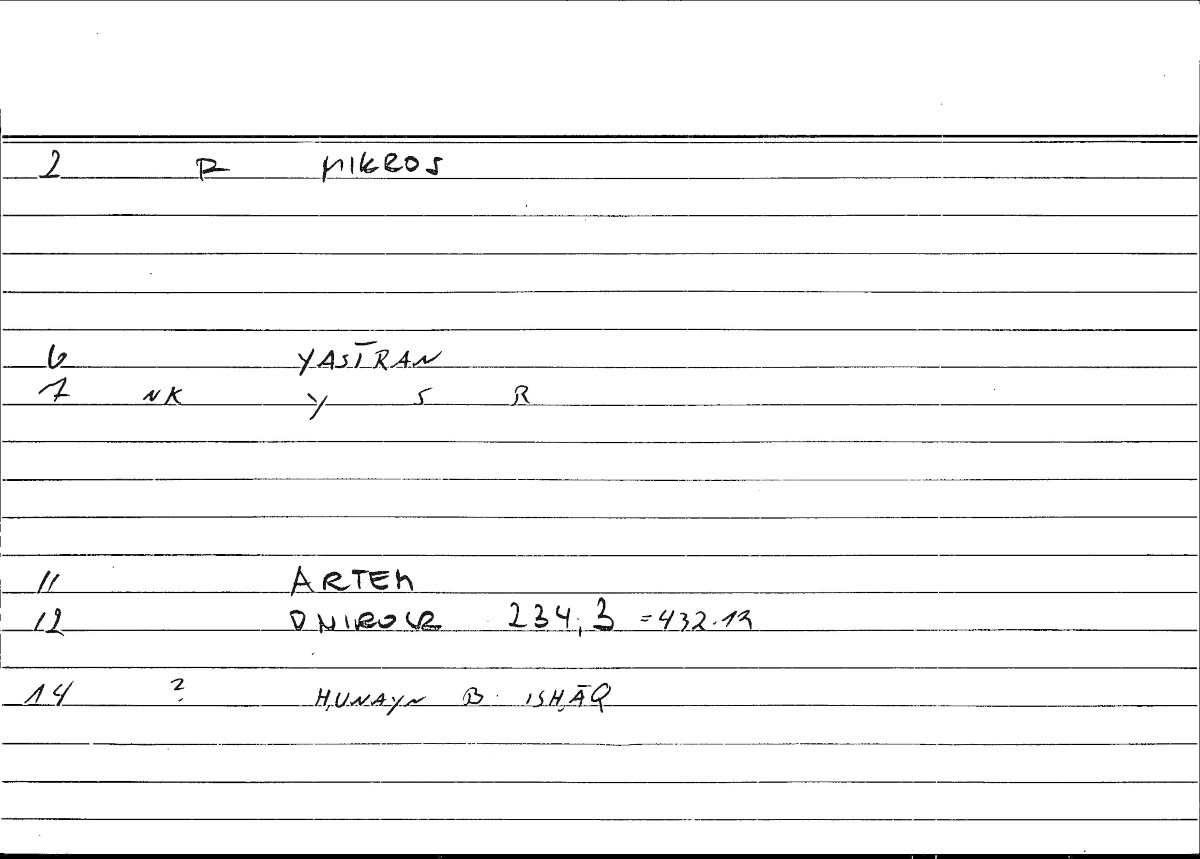 2 P MIKROS
6 YASTRAN
7 NK Y S R
11 ARTEM
12 ONIROCR 234,3 =432.12
14 ? ḤUNAYN B. ISḤĀQ